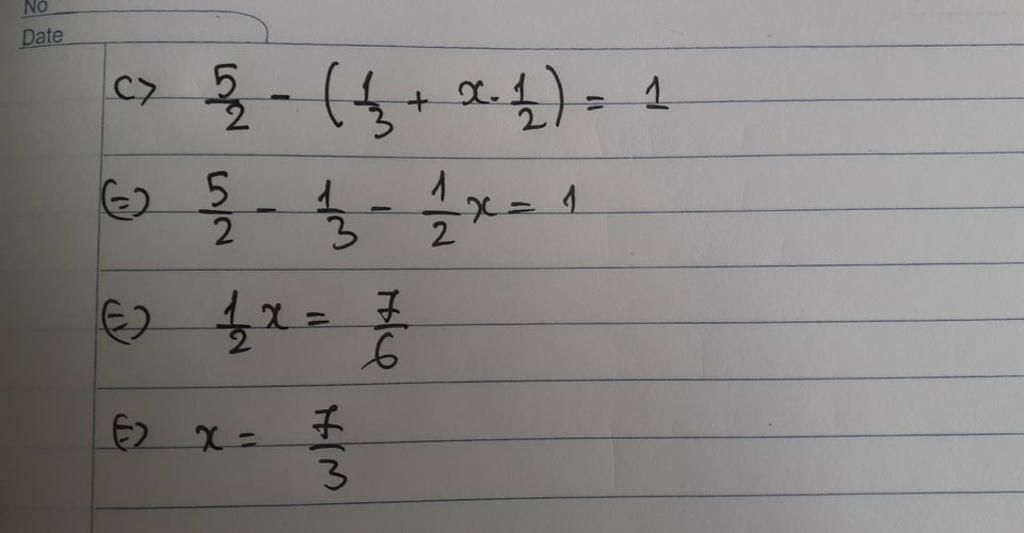 No
Date
c> 5/2 - (1/3 + x . 1/2) = 1
(=) 5/2 - 1/3 - 1/2 x = 1
(=) 1/2 x = 7/6
(=) x = 7/3